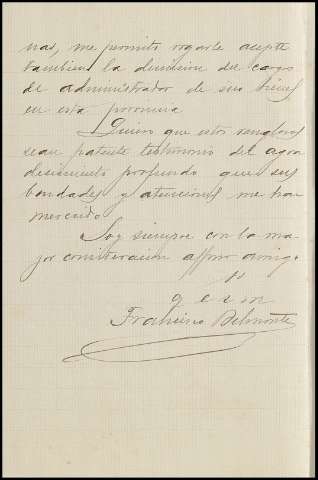 nas, me permito rogarle acepte
tambien la dimision del cargo
de administrador de sus bienes
en esta provincia
Quiero que estos renglones
sean patente testimonio del agra
decimiento profundo que sus
bondades y atenciones me han
merecido
Soy siempre con la ma
yor consideración affmo amigo
q
Francisco Belmonte